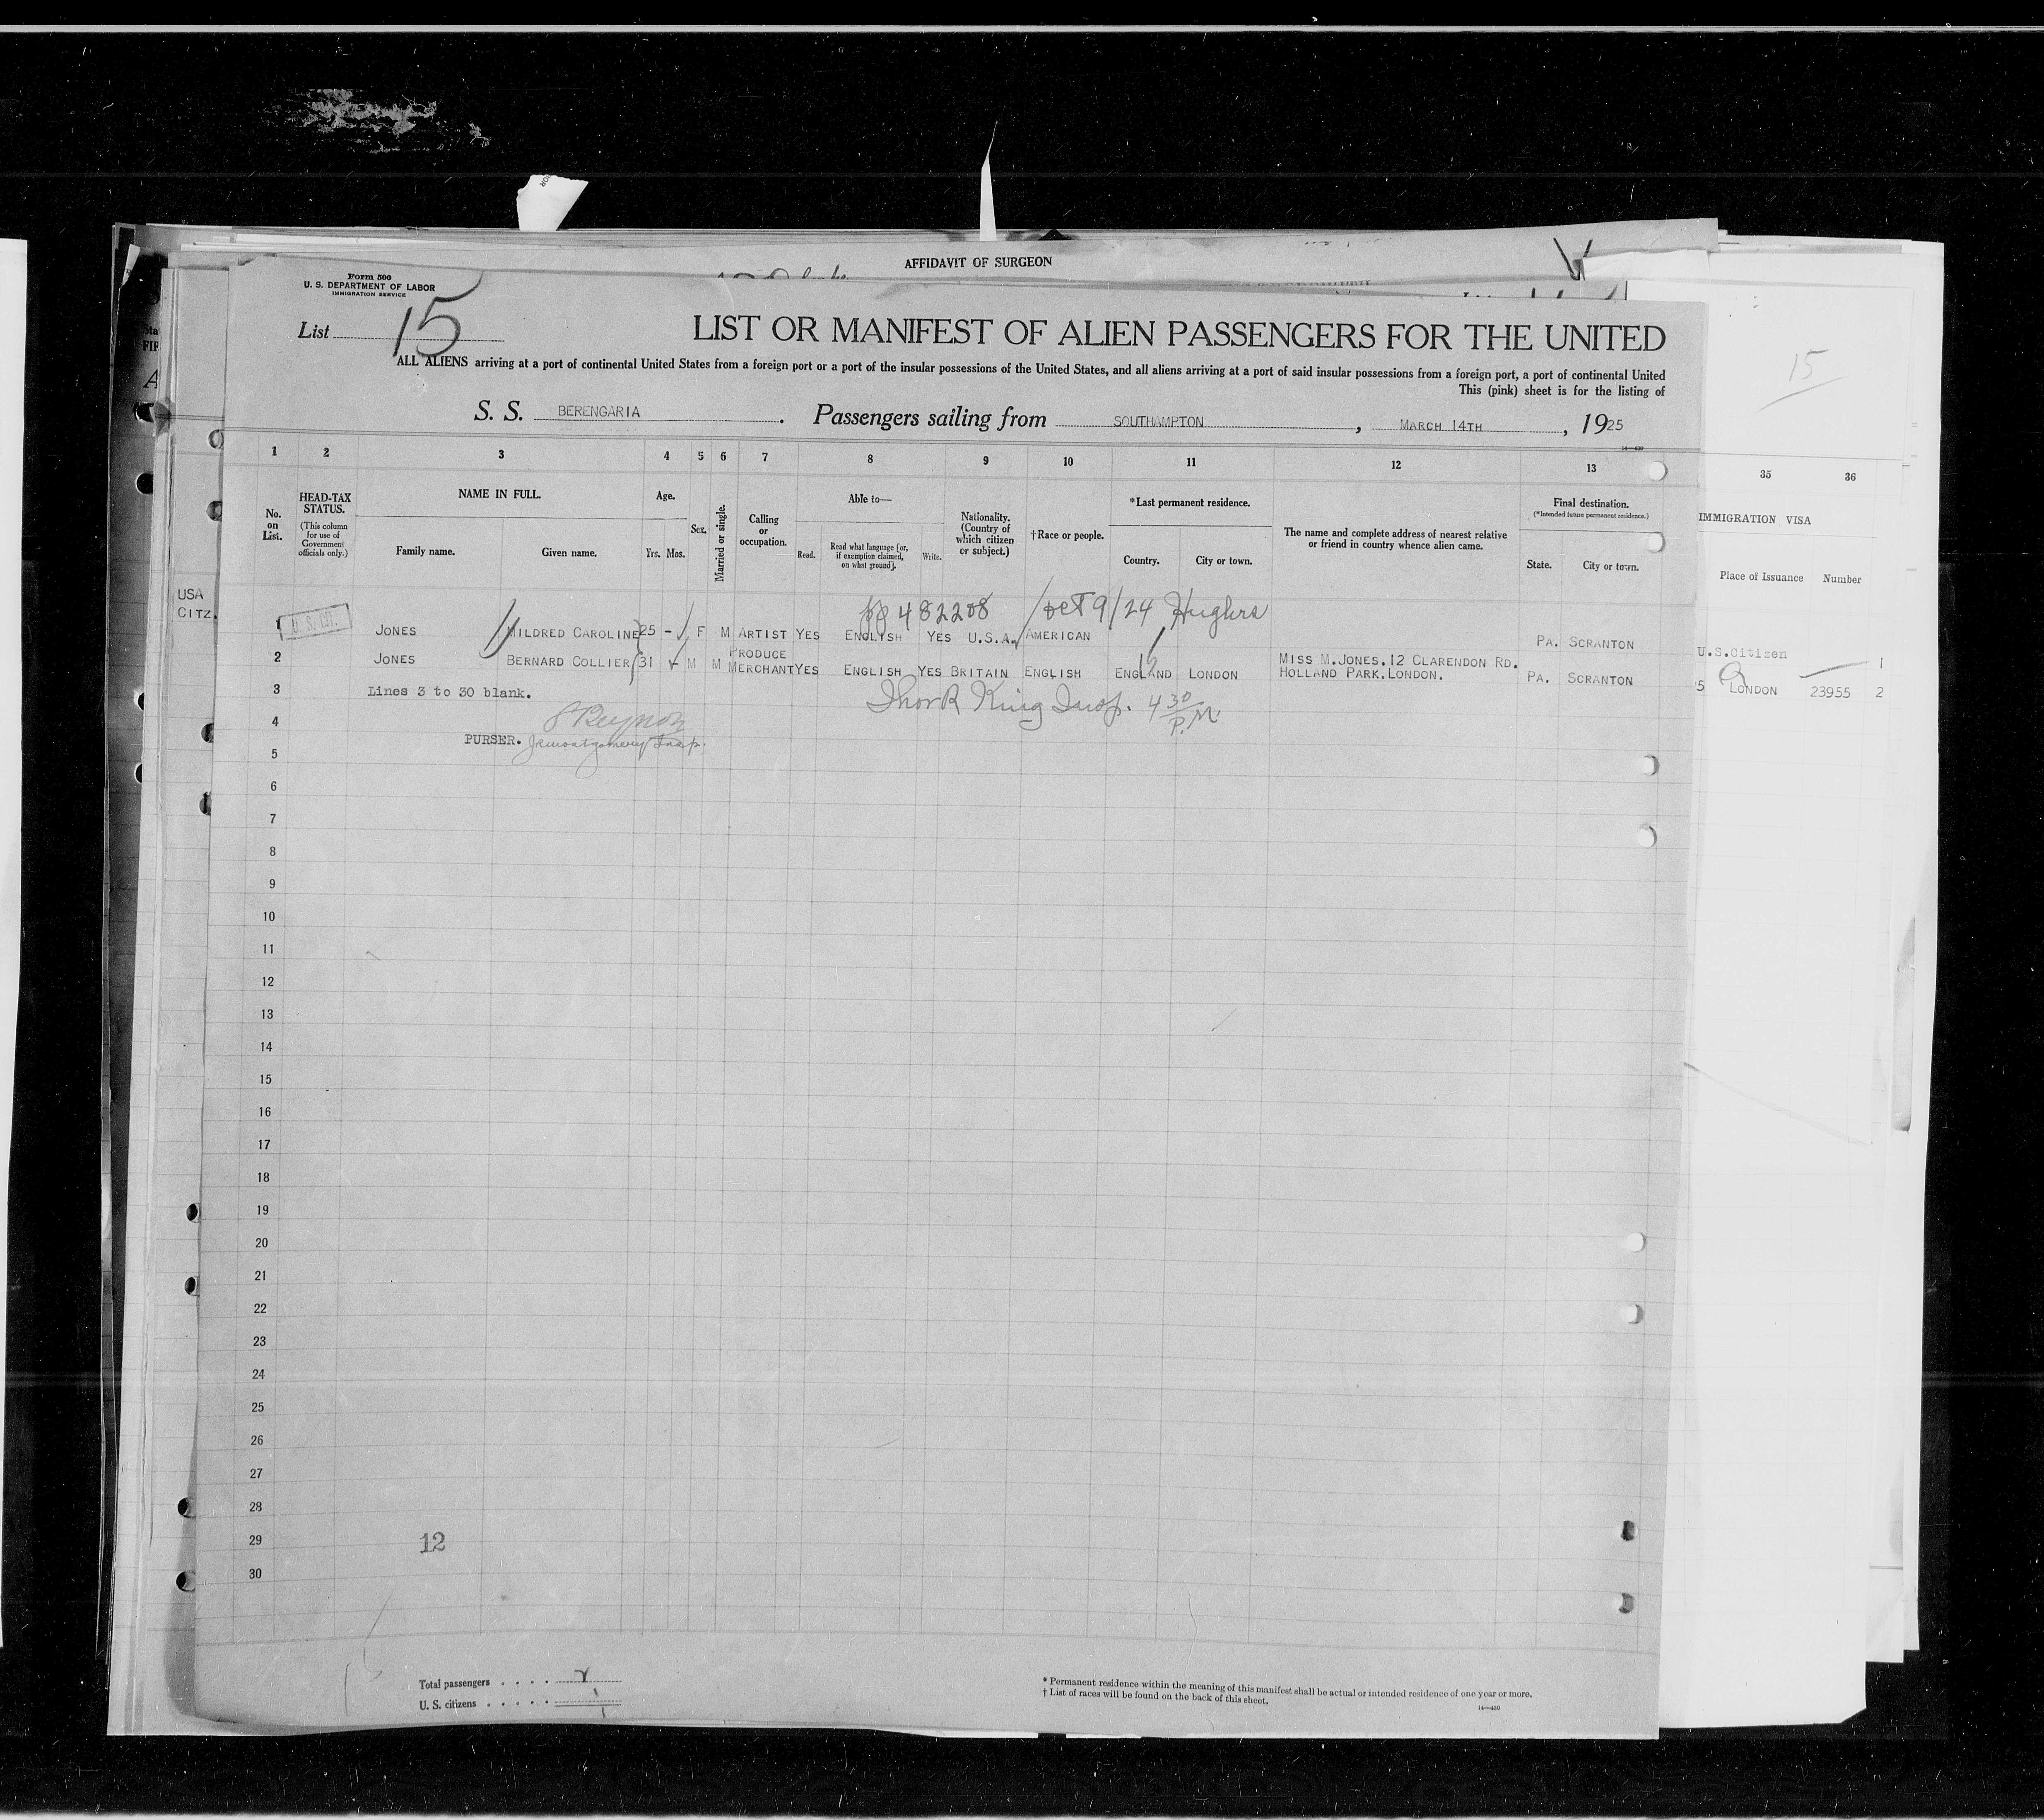 AFFIDAVIT OF SURGEON
Form 500
U. S. DEPARTMENT OF LABOR
IMMIGRATION SERVICE
List 15
LIST OR MANIFEST OF ALIEN PASSENGERS FOR THE UNITED
ALL ALIENS arriving at a port of continental United States from a foreign port or a port of the insular possessions of the United States, and all aliens arriving at a port of said insular possessions from a foreign port, a port of continental United
This (pink) sheet is for the listing of
15
S. S. BERENGARIA. Passengers sailing from SOUTHAMPTON, MARCH 14TH, 1925
14—430
1 2 3 4 5 6 7 8 9 10 11 12 13 35 36
No. on List.
HEAD-TAX STATUS.
(This column for use of Government officials only.)
NAME IN FULL.
Family name. Given name.
Age.
Yrs. Mos.
Sex.
Married or single.
Calling or occupation.
Able to—
Read. Read what language [or, if exemption claimed, on what ground]. Write.
Nationality. (Country of which citizen or subject.)
†Race or people.
*Last permanent residence.
Country. City or town.
The name and complete address of nearest relative or friend in country whence alien came.
Final destination.
(*Intended future permanent residence.)
State. City or town.
IMMIGRATION VISA
Place of Issuance Number
USA
CITZ.
pp 482208 / Oct 9/24 Hughes
1 U. S. CIT. JONES MILDRED CAROLINE 25 - F M ARTIST YES ENGLISH YES U.S.A. AMERICAN PA. SCRANTON U.S.Citizen 1
2 JONES BERNARD COLLIER 31 - M M PRODUCE MERCHANT YES ENGLISH YES BRITAIN ENGLISH ENGLAND LONDON MISS M.JONES.12 CLARENDON RD. HOLLAND PARK.LONDON. PA. SCRANTON 5 LONDON 23955 2
3 Lines 3 to 30 blank.
King Insp. 4 30 P.M.
4
PURSER. Montgomery Insp.
5
6
7
8
9
10
11
12
13
14
15
16
17
18
19
20
21
22
23
24
25
26
27
28
29 12
30
Total passengers . . . .
U. S. citizens . . . . .
* Permanent residence within the meaning of this manifest shall be actual or intended residence of one year or more.
† List of races will be found on the back of this sheet.
14—430